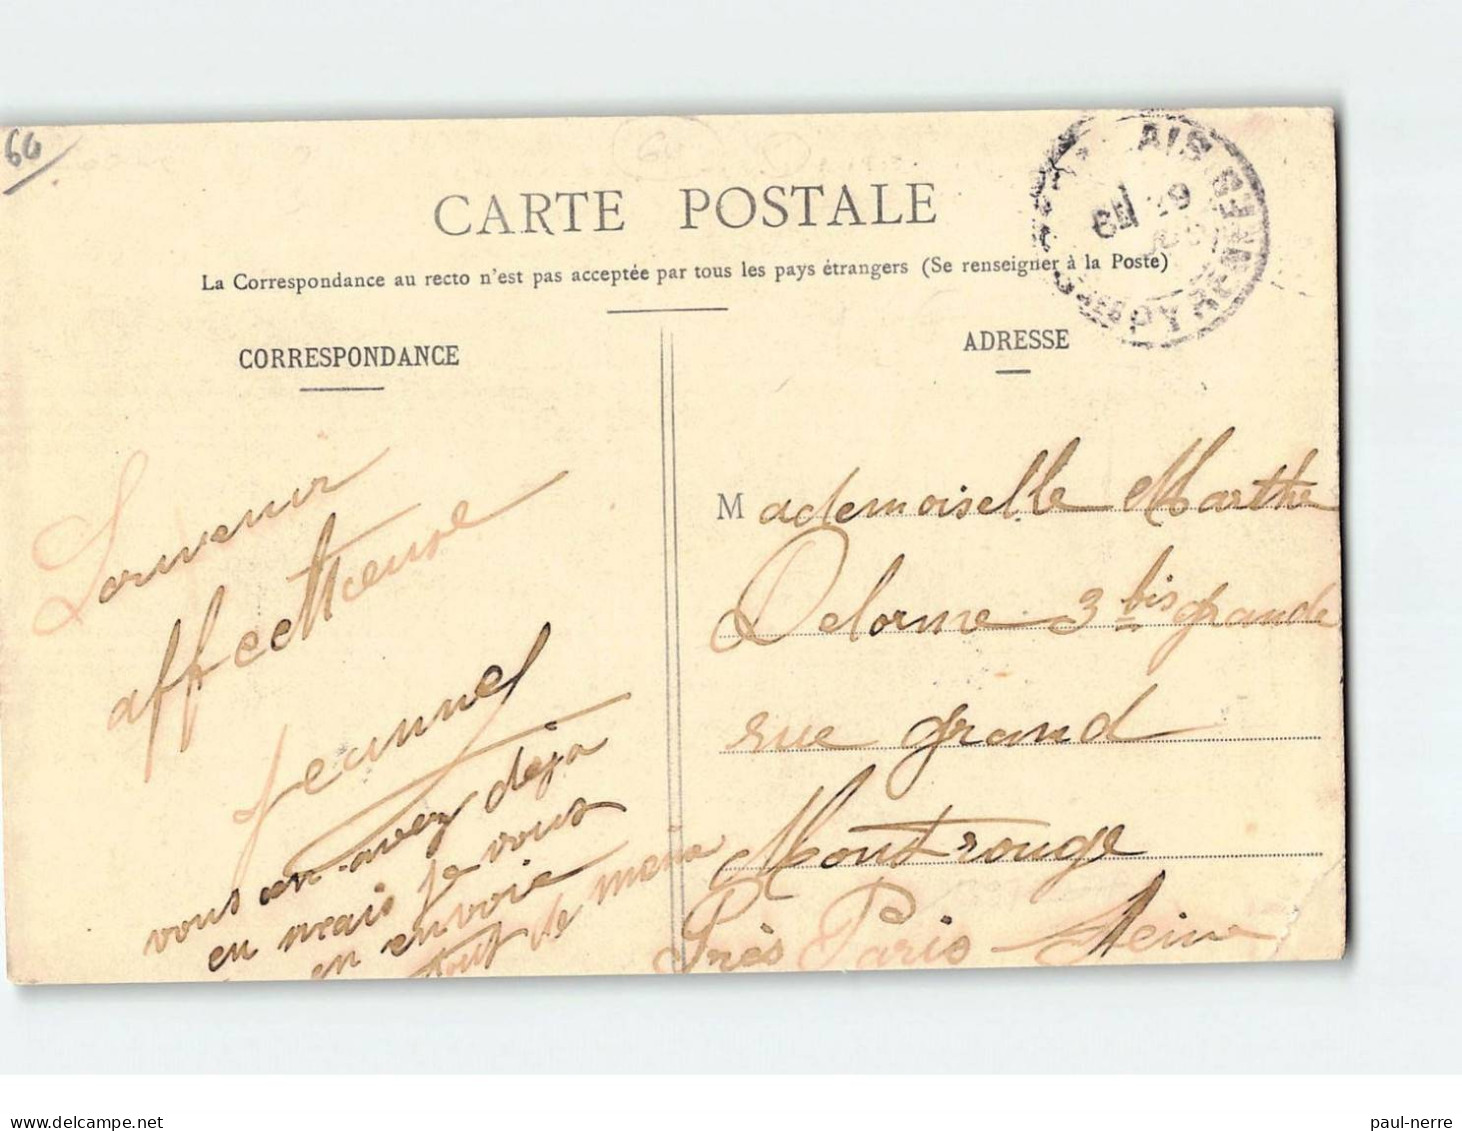 64
CARTE POSTALE
La Correspondance au recto n'est pas acceptée par tous les pays étrangers (Se renseigner à la Poste)
CORRESPONDANCE
Souvenir
affectueuse
Jeannel
vous en avez déja
eu mais je vous
en envoie
tout de meme
ADRESSE
Mademoiselle Marthe
Delorme 3 bis grande
rue grand
Montrouge
Près Paris Seine
PYRENEES
29
paul-nerre